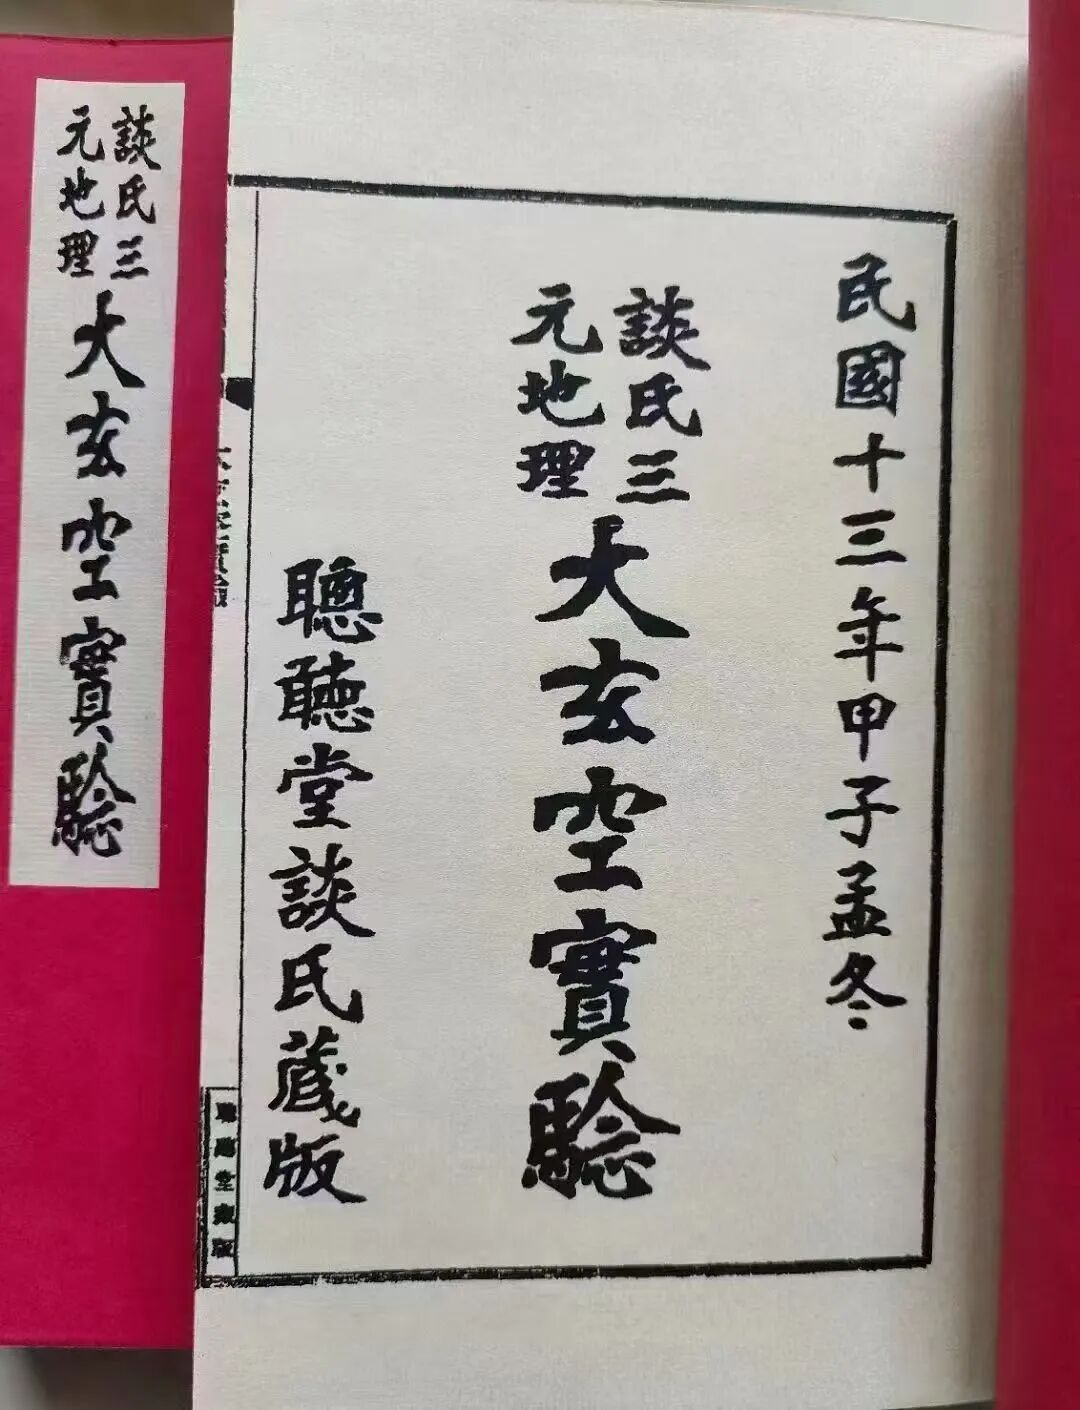 民國十三年甲子孟冬
談氏三
元地理
大玄空實驗
聰聽堂談氏藏版
談氏三
元地理
大玄空實驗